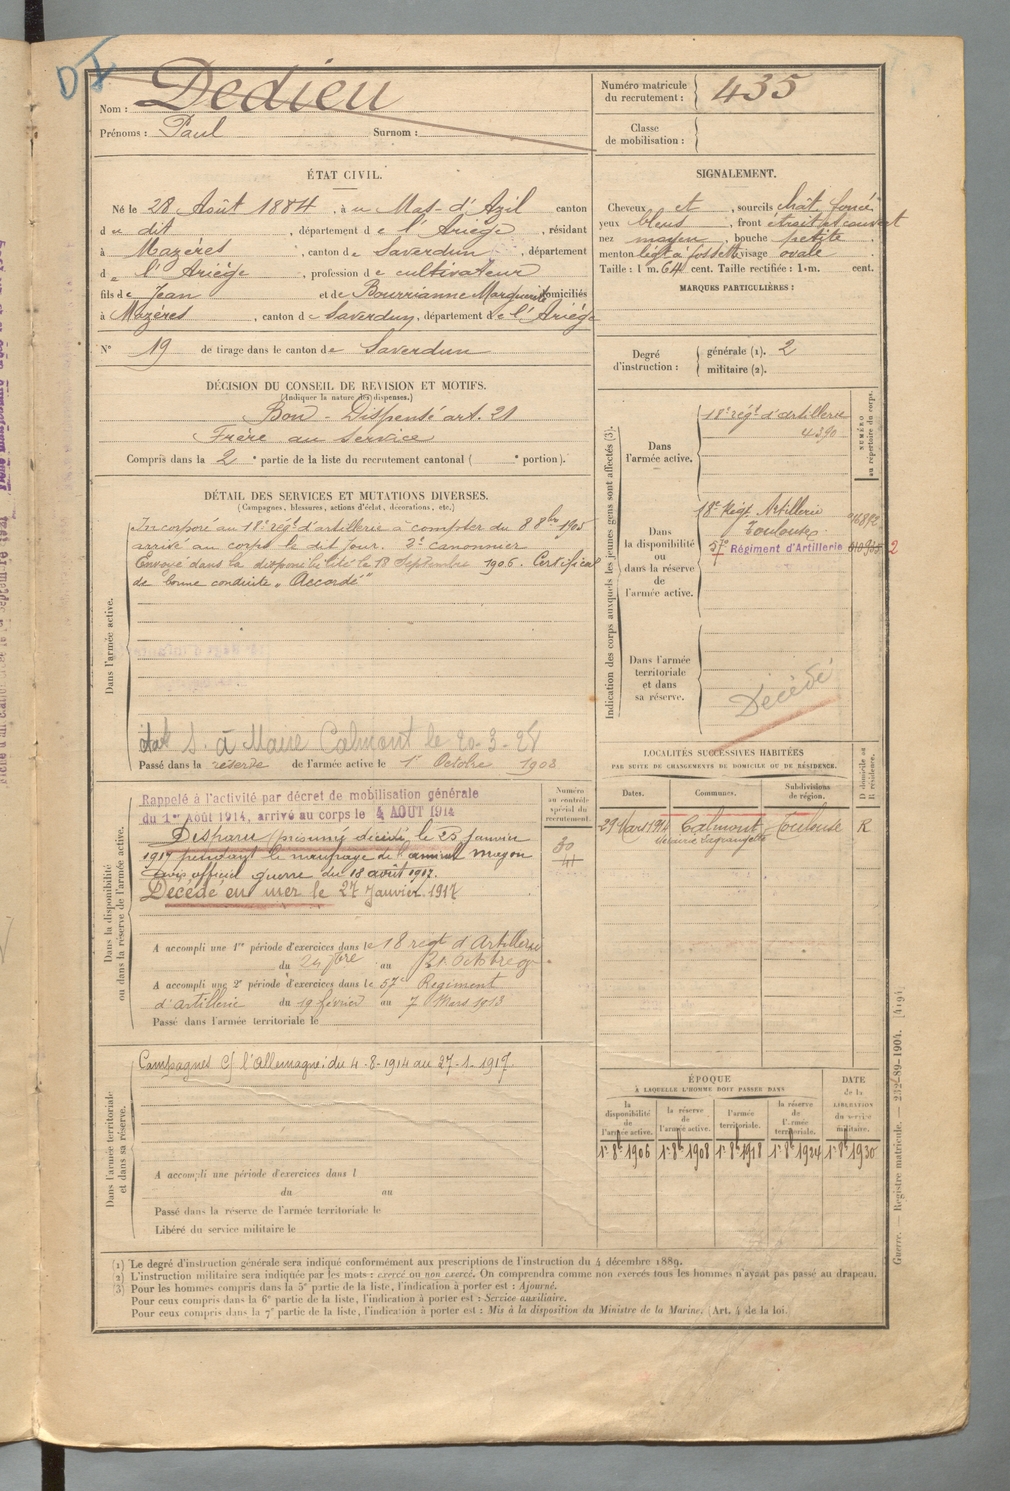 DI
Nom : Dedieu
Prénoms : Paul Surnom :
Numéro matricule
du recrutement : 435
Classe
de mobilisation :
ÉTAT CIVIL.
Né le 28 Août 1884, à u Mas-d'Azil canton
d u dit, département d e l'Ariège, résidant
à Mazères, canton d e Saverdun, département
d e l'Ariège, profession d e cultivateur
fils d e Jean et d e Bourrianne Marguerite domiciliés
à Mazères, canton d e Saverdun, département d e l'Ariège
N° 19 de tirage dans le canton d e Saverdun
SIGNALEMENT.
Cheveux et, sourcils chât. foncé
yeux bleus, front étroit et couvert
nez moyen, bouche petite,
menton légt à fossette visage ovale.
Taille : 1 m. 64 cent. Taille rectifiée : 1 m. cent.
MARQUES PARTICULIÈRES :
Degré
d'instruction :
générale (1). 2
militaire (2).
DÉCISION DU CONSEIL DE REVISION ET MOTIFS.
(Indiquer la nature des dispenses.)
Bon - Dispensé art. 21
Frère au service
Compris dans la 2e partie de la liste du recrutement cantonal ( e portion).
DÉTAIL DES SERVICES ET MUTATIONS DIVERSES.
(Campagnes, blessures, actions d'éclat, décorations, etc.)
Dans l'armée active.
Incorporé au 18e régt d'artillerie à compter du 8 8bre 1905
arrivé au corps le dit jour. 2e canonnier
Envoyé dans la disponibilité le 18 Septembre 1906. Certificat
de bonne conduite "Accordé"
S. à Maire Calmont le 20-3-28
Passé dans la réserve de l'armée active le 1er Octobre 1908
Indication des corps auxquels les jeunes gens sont affectés (3).
NUMÉRO
au répertoire du corps.
Dans
l'armée active.
18e régt d'artillerie
4390
Dans
la disponibilité
ou
dans la réserve
de
l'armée active.
18e Régt Artillerie
Toulouse
57e Régiment d'Artillerie
2
Dans l'armée
territoriale
et dans
sa réserve.
Décédé
LOCALITÉS SUCCESSIVES HABITÉES
PAR SUITE DE CHANGEMENTS DE DOMICILE OU DE RÉSIDENCE.
D domicile ou
R résidence.
Dates.
Communes.
Subdivisions
de région.
29 Mars 1914 Calmont Toulouse R
Numéro
au contrôle
spécial du
recrutement.
30
41
Dans la disponibilité
ou dans la réserve de l'armée active.
Rappelé à l'activité par décret de mobilisation générale
du 1er Août 1914, arrivé au corps le 4 AOUT 1914
Disparu (présumé décédé) le 25 janvier
1917 pendant le naufrage de l'amiral Magon
Avis officiel guerre du 18 août 1917.
Décédé en mer le 27 Janvier 1917
A accompli une 1re période d'exercices dans le 18 régt d'Artillerie
du 24 7bre au
A accompli une 2e période d'exercices dans le 57e Régiment
d'artillerie du 19 février au 7 Mars 1913
Passé dans l'armée territoriale le
Dans l'armée territoriale
et dans sa réserve.
Campagnes c/ l'Allemagne : du 4-8-1914 au 27-1-1917.
A accompli une période d'exercices dans l
du au
Passé dans la réserve de l'armée territoriale le
Libéré du service militaire le
ÉPOQUE
À LAQUELLE L'HOMME DOIT PASSER DANS
DATE
de la
LIBÉRATION
du service
militaire.
la
disponibilité
de
l'armée active.
la réserve
de
l'armée active.
l'armée
territoriale.
la réserve
de
l'armée
territoriale.
1er 8bre 1906 1er 8bre 1908 1er 8bre 1918 1er 8bre 1924 1er 8bre 1930
(1) Le degré d'instruction générale sera indiqué conformément aux prescriptions de l'instruction du 4 décembre 1889.
(2) L'instruction militaire sera indiquée par les mots : exercé ou non exercé. On comprendra comme non exercés tous les hommes n'ayant pas passé au drapeau.
(3) Pour les hommes compris dans la 5e partie de la liste, l'indication à porter est : Ajourné.
Pour ceux compris dans la 6e partie de la liste, l'indication à porter est : Service auxiliaire.
Pour ceux compris dans la 7e partie de la liste, l'indication à porter est : Mis à la disposition du Ministre de la Marine. (Art. 4 de la loi.)
Guerre. — Registre matricule. — 232-89-1904. [419]